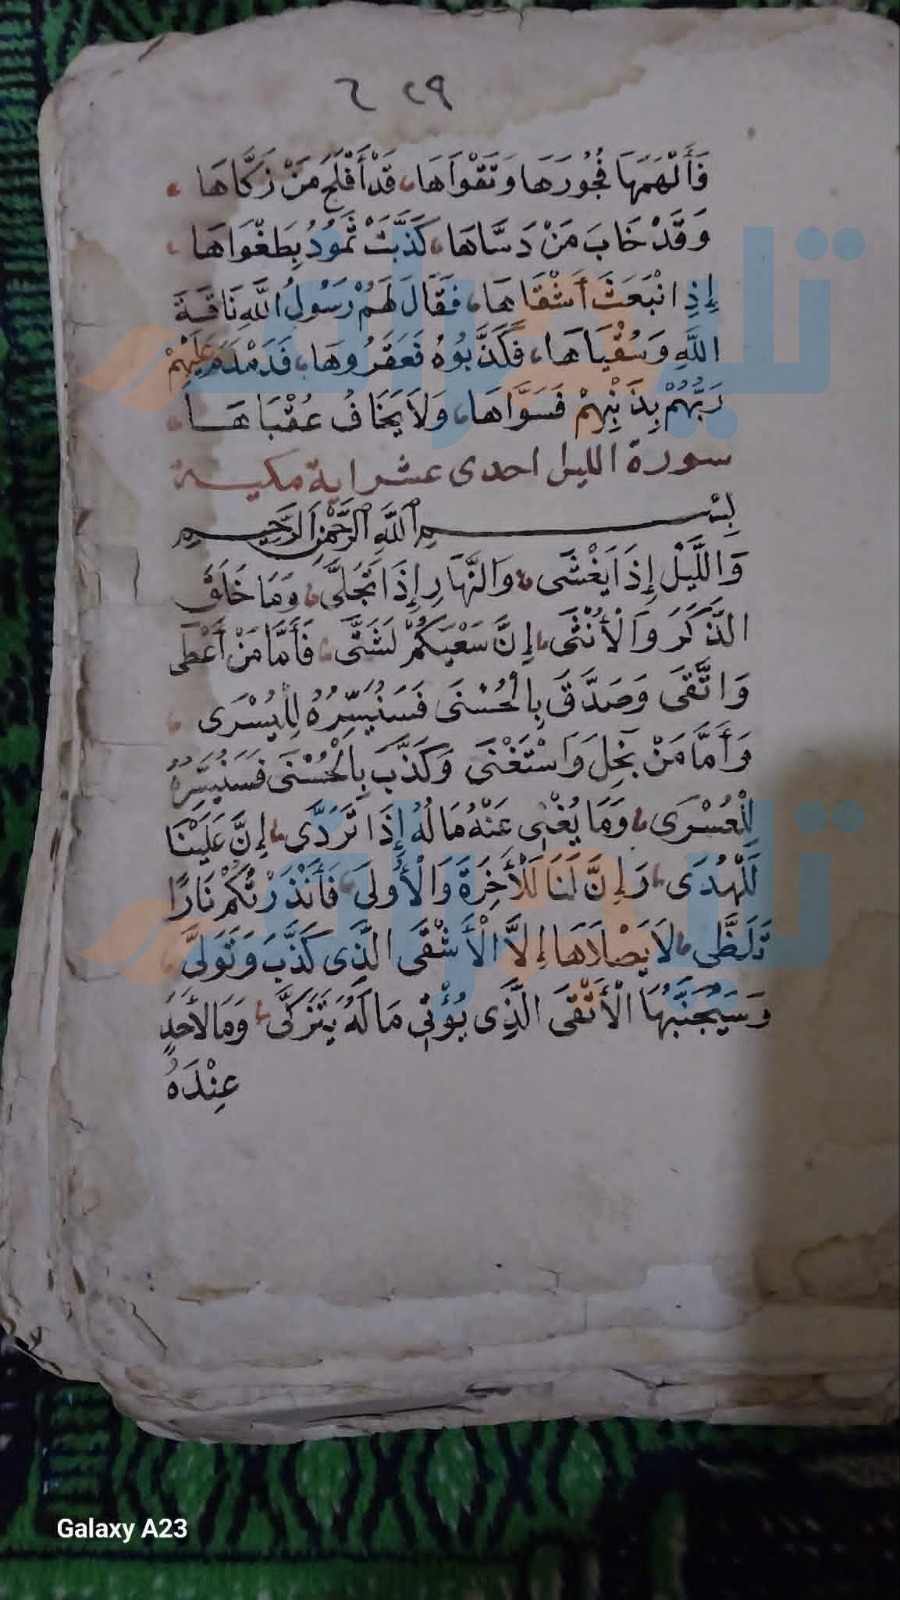 ٢٩ ٦
فَأَلْهَمَهَا فُجُورَهَا وَتَقْوَاهَا، قَدْ أَفْلَحَ مَنْ زَكَّاهَا
وَقَدْ خَابَ مَنْ دَسَّاهَا، كَذَّبَتْ ثَمُودُ بِطَغْوَاهَا
إِذِ انْبَعَثَ أَشْقَاهَا، فَقَالَ لَهُمْ رَسُولُ اللَّهِ نَاقَةَ
اللَّهِ وَسُقْيَاهَا، فَكَذَّبُوهُ فَعَقَرُوهَا، فَدَمْدَمَ عَلَيْهِمْ
رَبُّهُمْ بِذَنْبِهِمْ فَسَوَّاهَا، وَلَا يَخَافُ عُقْبَاهَا
سورة الليل احدى عشر اية مكية
بِسْمِ اللَّهِ الرَّحْمَنِ الرَّحِيمِ
وَاللَّيْلِ إِذَا يَغْشَى، وَالنَّهَارِ إِذَا تَجَلَّى، وَمَا خَلَقَ
الذَّكَرَ وَالْأُنْثَى، إِنَّ سَعْيَكُمْ لَشَتَّى، فَأَمَّا مَنْ أَعْطَى
وَاتَّقَى وَصَدَّقَ بِالْحُسْنَى فَسَنُيَسِّرُهُ لِلْيُسْرَى
وَأَمَّا مَنْ بَخِلَ وَاسْتَغْنَى وَكَذَّبَ بِالْحُسْنَى فَسَنُيَسِّرُهُ
لِلْعُسْرَى، وَمَا يُغْنِى عَنْهُ مَالُهُ إِذَا تَرَدَّى، إِنَّ عَلَيْنَا
لَلْهُدَى، وَإِنَّ لَنَا لَلْأَخِرَةَ وَالْأُولَى، فَأَنْذَرْتُكُمْ نَارًا
تَلَظَّى، لَا يَصْلَاهَا إِلَّا الْأَشْقَى الَّذِى كَذَّبَ وَتَوَلَّى
وَسَيُجَنَّبُهَا الْأَتْقَى الَّذِى يُؤْتِى مَالَهُ يَتَزَكَّى، وَمَا لِأَحَدٍ
عِنْدَهُ
Galaxy A23